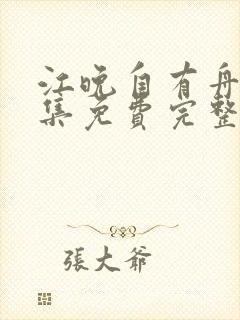 江晚自有舟
集免费完整
張大爺